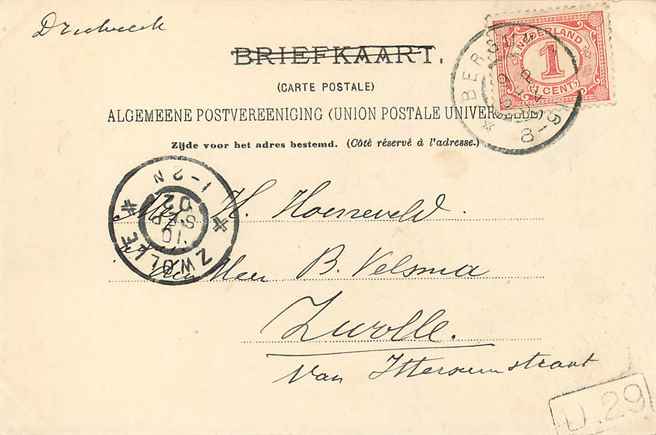 Driebeek
BRIEFKAART.
(CARTE POSTALE)
ALGEMEENE POSTVEREENIGING (UNION POSTALE UNIVERSELLE)
Zijde voor het adres bestemd. (Côté réservé à l'adresse.)
NEDERLAND
1
CENT
ZWOLLE
10
SEP
02
1-2N
H. Hoeneveld
Heer B. Velsma
Zwolle.
Van Ittersumstraat
U.29